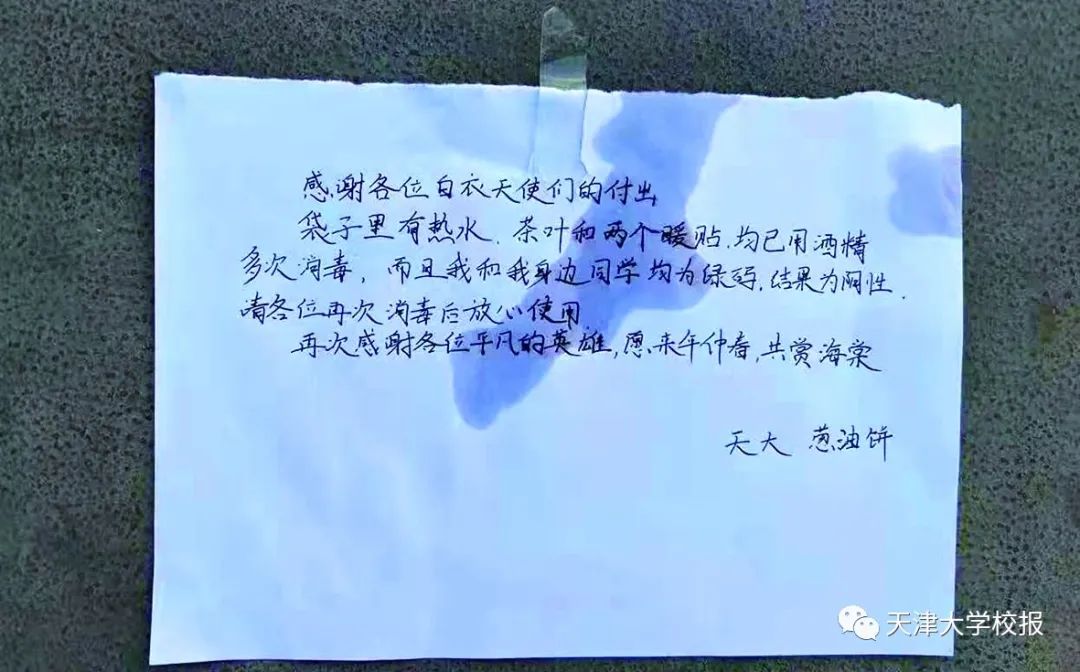 感谢各位白衣天使们的付出
袋子里有热水、茶叶和两个暖贴,均已用酒精
多次消毒,而且我和我身边同学均为绿码,结果为阴性.
请各位再次消毒后放心使用
再次感谢各位平凡的英雄,愿来年仲春,共赏海棠
天大 葱油饼
天津大学校报